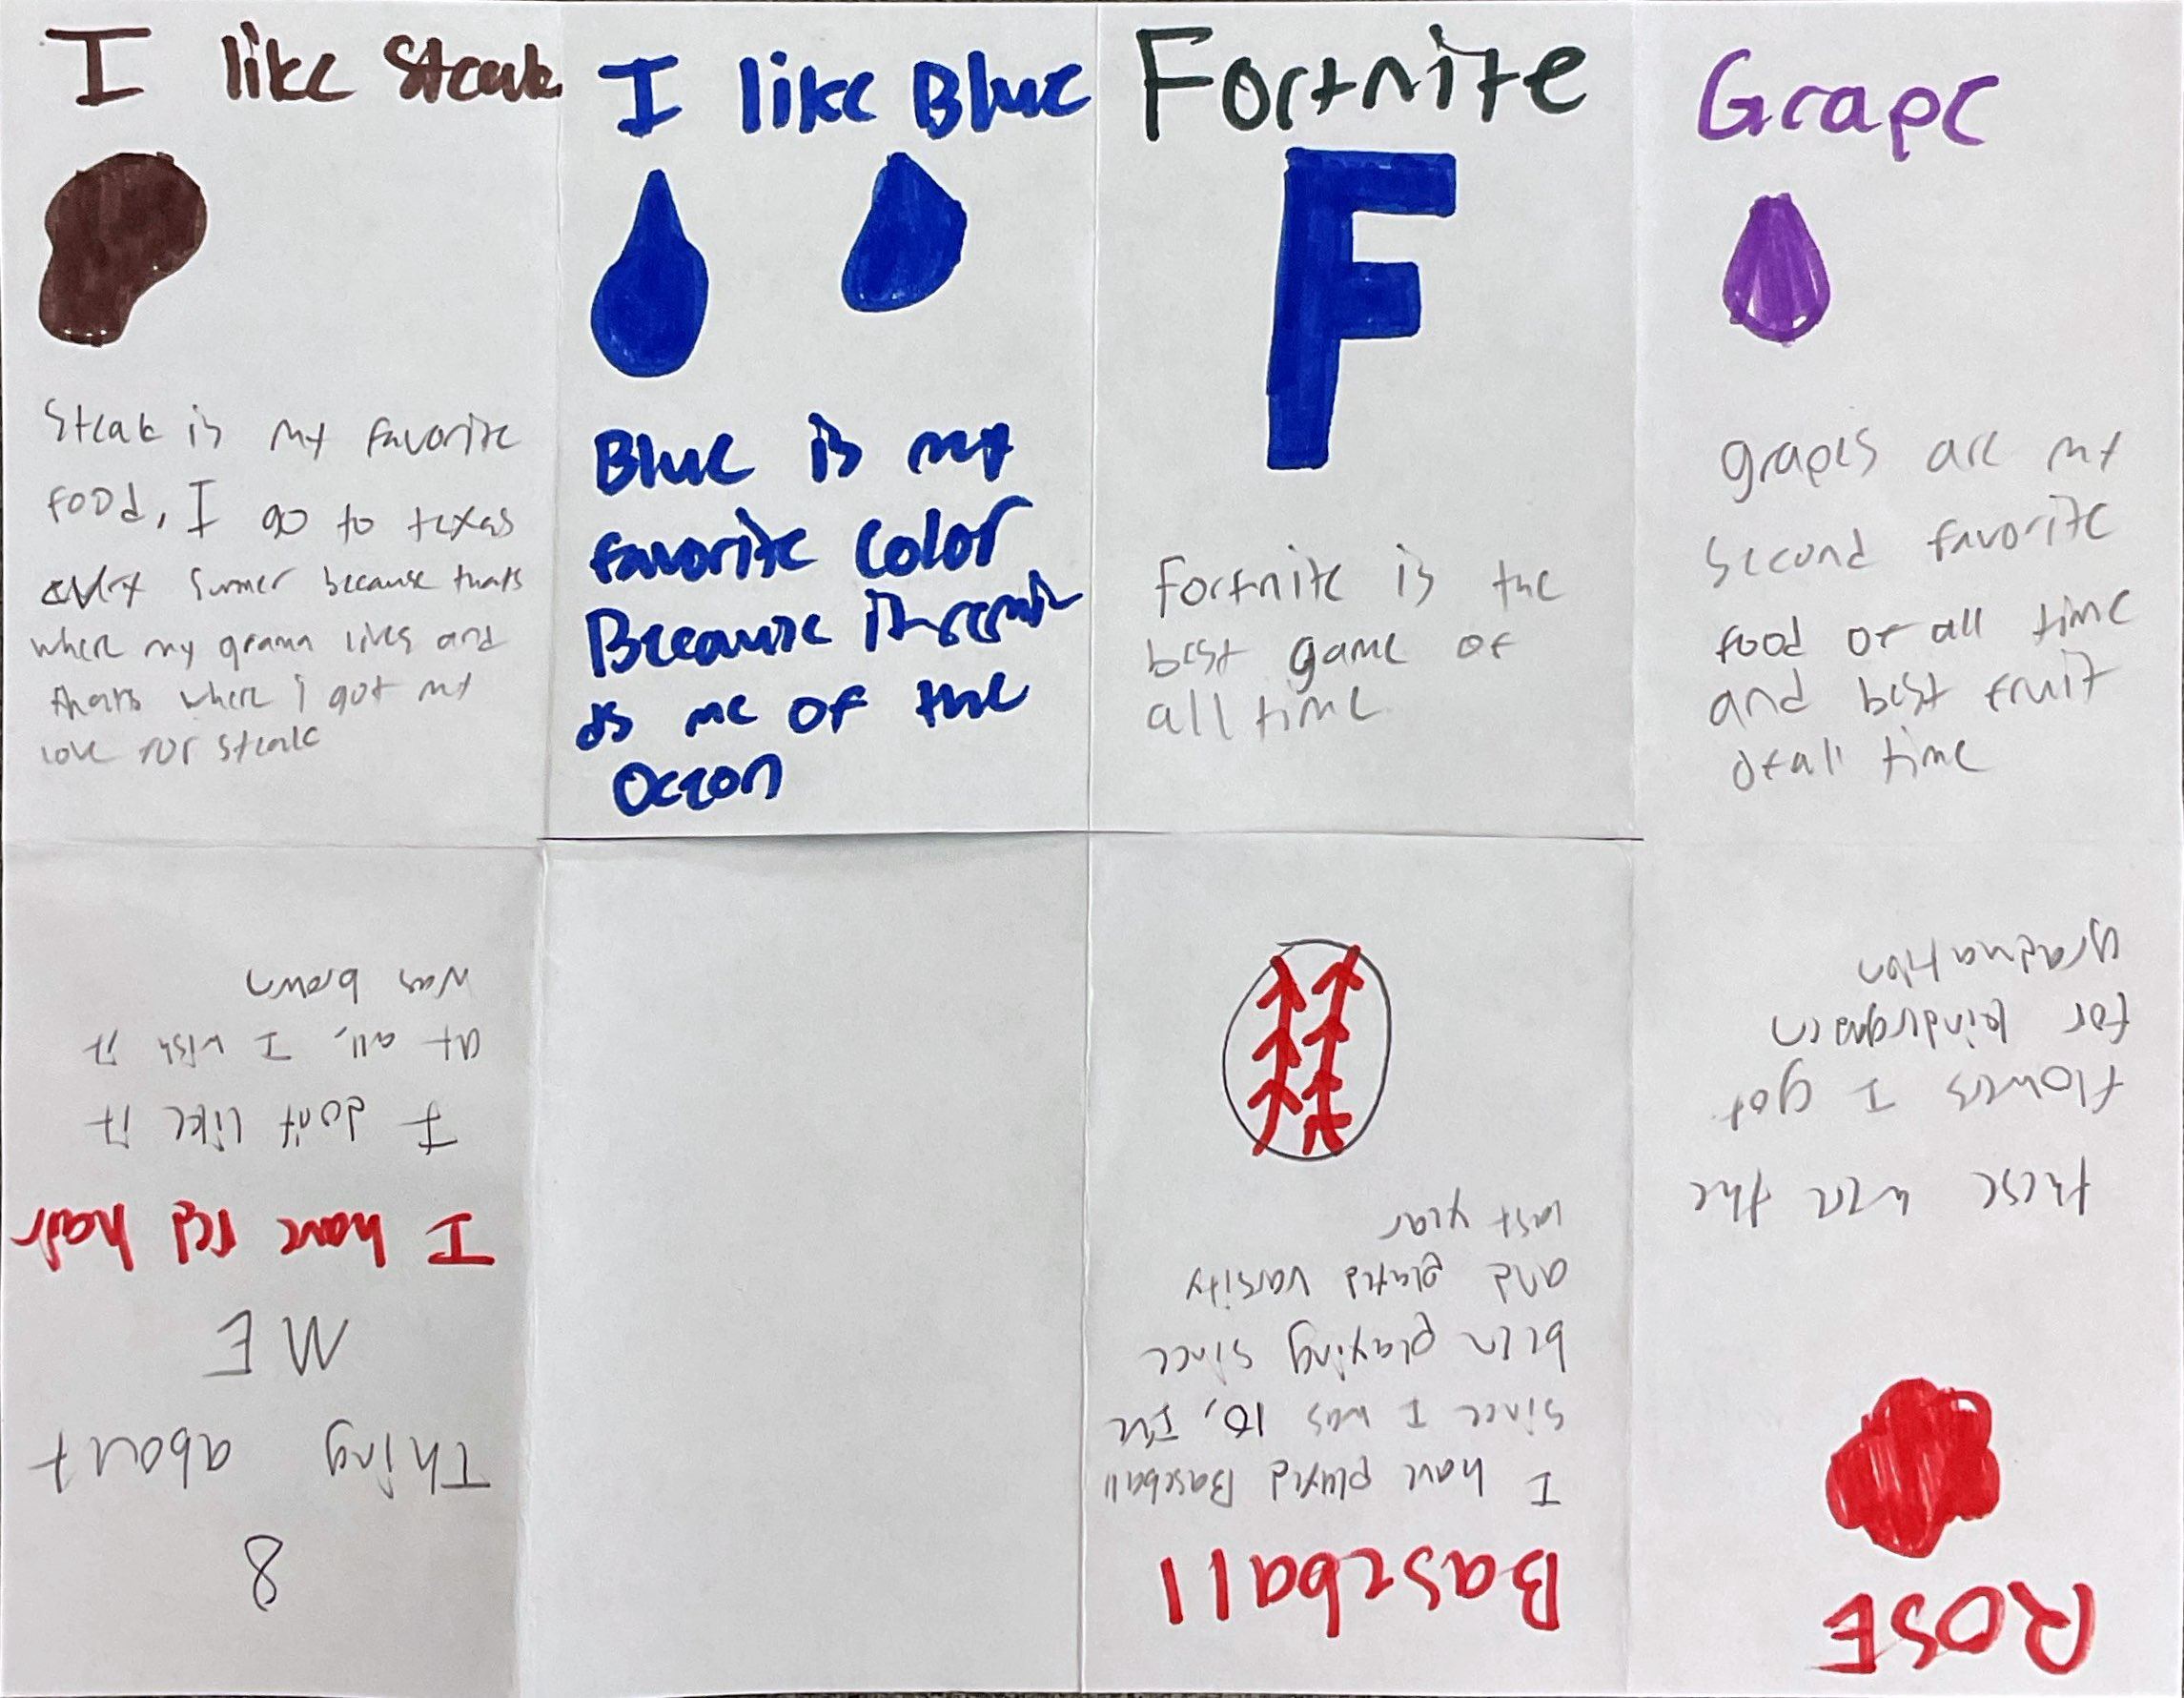 I like Steak
Steak is my favorite
food, I go to texas
every Sumer because thats
where my grama lives and
thats where i got my
love for steak
I like Blue
Blue is my
favorite color
Because it remin
ds me of the
Oceon
Fortnite
F
Fortnite is the
best game of
all time
Grape
grapes are my
second favorite
food of all time
and best fruit
of all time
ROSE
these were the
flowers I got
for kindergaren
graduation
Baseball
I have played Baseball
since I was 10, I've
been playing since
and played varsity
last year
8
Thing about
ME
I have red hair
I don't like it
at all, I wish it
was brown